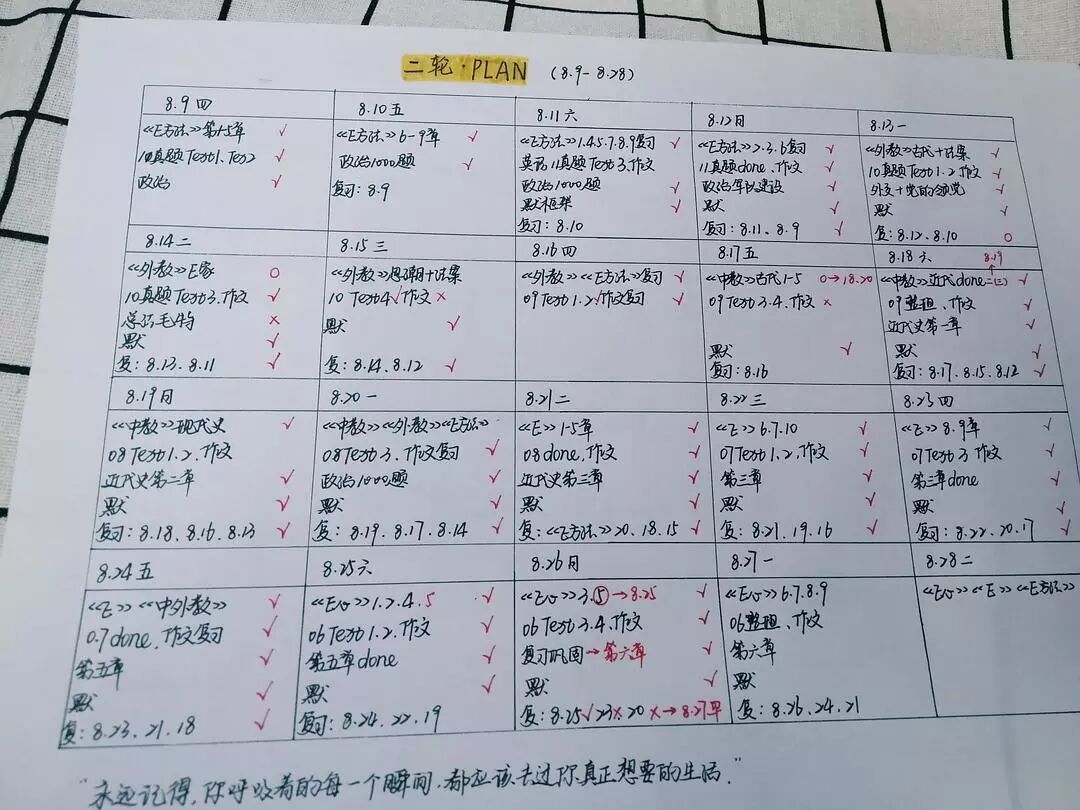 二轮·PLAN (8.9-8.28)
8.9 四
《E方法》第1-5章 √
10真题Test1、Test2 √
政治 √
8.10 五
《E方法》6-9章 √
政治1000题 √
复习:8.9
8.11 六
《E方法》1.4.5.7.8.9复习 √
英语11真题Test3.作文 √
政治1000题 √
默框架 √
复习:8.10
8.12 日
《E方法》2.3.6复习 √
11真题done、作文 √
政治军队建设 √
默 √
复习:8.11、8.9 √
8.13 一
《外教》古代+计案 √
10真题Test1.2.作文 √
外交+党的领党 √
默 √
复:8.12、8.10 O
8.14 二
《外教》E家 O
10真题Test3.作文 √
毛特 ×
默 √
复:8.13、8.11 √
8.15 三
《外教》 √
10 Test4√作文×
默 √
复:8.14、8.12 √
8.16 四
《外教》《E方法》复习 √
09Test1.2√作文复习 √
8.17 五
《中教》古代1-5 O→18.20
09Test3.4.作文 ×
默 √
复习:8.16
8.18 六 8.19
《中教》近代done二(三) √
09整理、作文 √
近代史第一章
默 √
复习:8.17、8.15、8.12 √
8.19 日
《中教》现代史 √
08Test1.2、作文
近代史第二章 √
默 √
复习:8.18、8.16、8.13 √
8.20 一
《中教》《外教》《E方法》
08Test3、作文复习 √
政治1000题 √
默 √
复:8.19、8.17、8.14 √
8.21 二
《E》1-5章 √
08done、作文 √
近代史第三章 √
默 √
复:《E方法》20、18、15 √
8.22 三
《E》6.7.10 √
07Test1.2、作文 √
第三章 √
默 √
复:8.21、19、16 √
8.23 四
《E》8.9章 √
07Test3 作文 √
第三章done √
默 √
复习:8.22、20、17 √
8.24 五
《E》《中外教》 √
0.7done、作文复习 √
第五章 √
默 √
复:8.23、21、18 √
8.25 六
《Eν》1.2.4.5 √
06Test1.2、作文 √
第五章done √
默 √
复习:8.24、22、19
8.26 日
《Eν》3.⑤→8.25 √
06Test3.4、作文 √
复习巩固→第六章
默 √
复:8.25√23×20×→8.27早
8.27 一
《Eν》6.7.8.9
06整理、作文
第六章
默
复:8.26、24、21
8.28 二
《Eν》《E》《E方法》
"永远记得,你呼吸着的每一个瞬间,都应该去过你真正想要的生活."